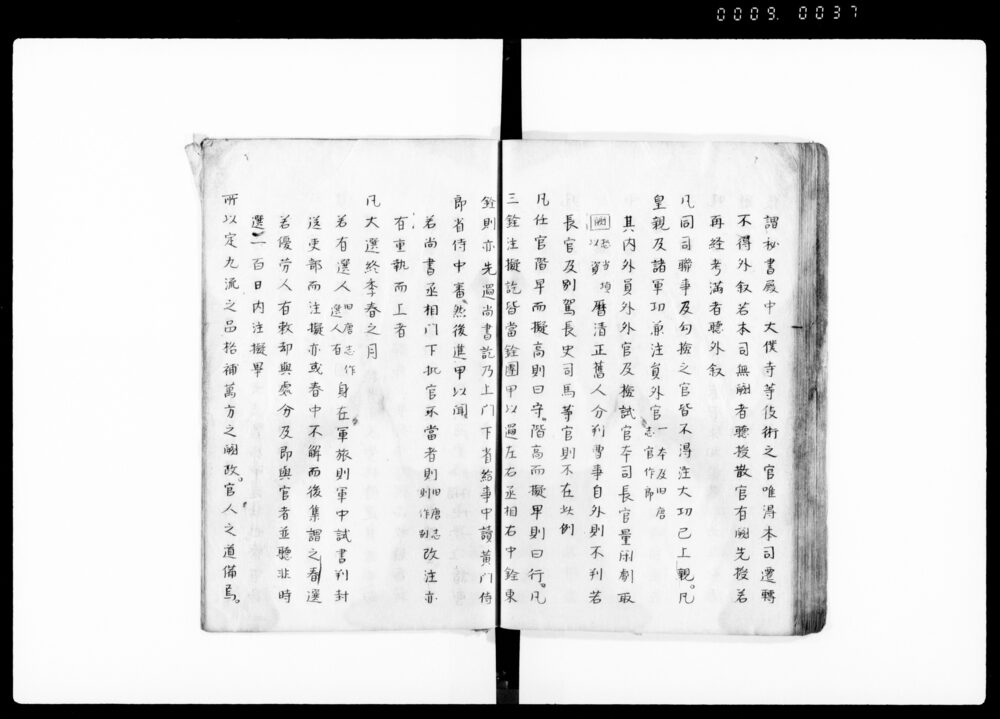 0009.0037
謂秘書殿中大僕寺等伎術之官唯得本司遷轉
不得外叙若本司無闕者聽授散官有闕先授若
再經考滿者聽外叙
凡同司聯事及勾撿之官皆不得注大功已上親。凡
皇親及諸軍功兼注員外官一本及旧唐志官作郎
其内外員外外官及檢試官本司長官量閑劇取
闕以資 當項曆清正舊人分判曹事自外則不判若
長官及別駕長史司馬等官則不在此例
凡任官階卑而擬高則曰守。階高而擬卑則曰行。凡
三銓注擬訖皆當銓團甲以過左右丞相右中銓東
銓則亦先過尚書訖乃上门下省給事中讀黄门侍
郎省侍中審然後進甲以聞
若尚書丞相门下批官不當者則旧唐志則作別改注亦
有重執而上者
凡大選終季春之月
若有選人旧唐志作選人有身在軍旅則軍中試書判封
送吏部而注擬亦或春中不解而後集謂之春選
若優勞人有敕却與處分及即與官者並聽非時
選一百日内注擬畢
所以定九流之品格補萬方之闕政。官人之道備焉。